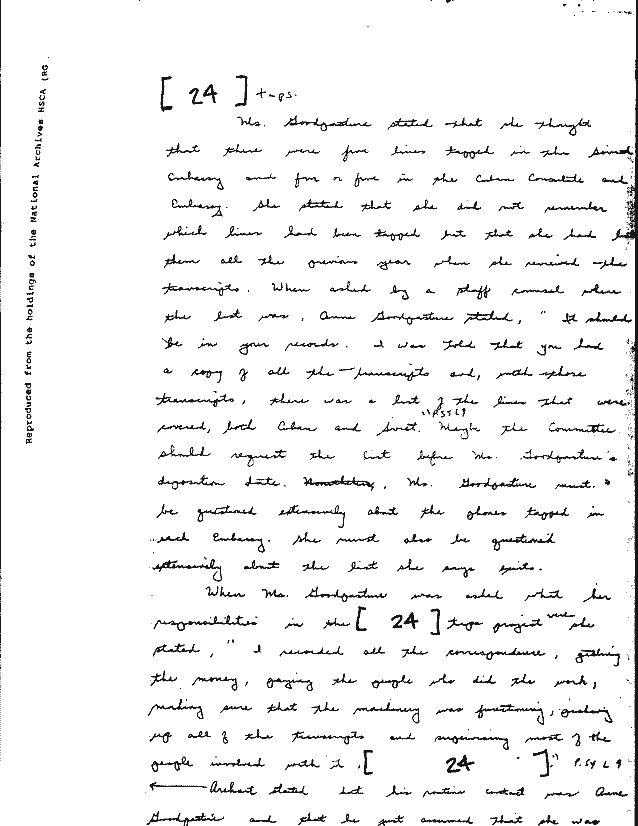 Reproduced from the holdings of the National Archives HSCA (RG
[ 24 ] taps.
Ms. Goodpasture stated that she thought
that there were five lines tapped in the Soviet
Embassy and four or five in the Cuban Consulate and
Embassy. She stated that she did not remember
which lines had been tapped but that she had
them all the previous year when she reviewed the
transcripts. When asked by a staff counsel where
the list was, Anne Goodpasture stated, " It should
be in your records. I was told that you had
a copy of all the transcripts and, with those
transcripts, there was a list of the lines that were
covered, both Cuban and Soviet." Maybe the Committee
should request the list before Ms. Goodpasture's
deposition date. Ms. Goodpasture must
be questioned extensively about the phones tapped in
each Embassy. She must also be questioned
extensively about the list she says exists.
When Ms. Goodpasture was asked what her
responsibilities in the [ 24 ] taps project were she
stated, " I recorded all the correspondence, getting
the money, paying the people who did the work,
making sure that the machinery was functioning, picking
up all of the transcripts and supervising most of the
people involved with it. [ 24 ]." P.54 L9
stated that his routine contact was Anne
Goodpasture and that he just assumed that she was